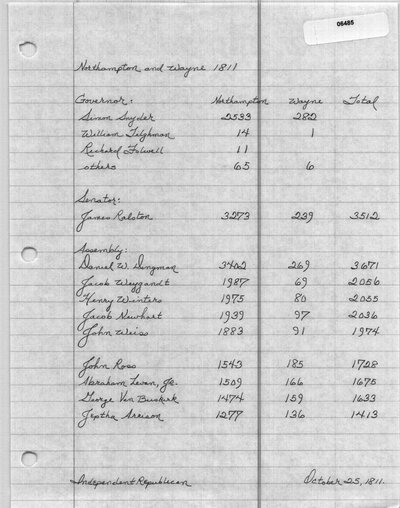 06485
Northampton and Wayne 1811
Governor: Northampton Wayne Total
Simon Snyder 2533 282
William Tilghman 14 1
Richard Folwell 11
others 65 6
Senator:
James Ralston 3273 239 3512
Assembly:
Daniel W. Dingman 3402 269 3671
Jacob Weygandt 1987 69 2056
Henry Winters 1975 80 2055
Jacob Newhart 1939 97 2036
John Weiss 1883 91 1974
John Ross 1543 185 1728
Abraham Leven, Jr. 1509 166 1675
George Van Buskirk 1474 159 1633
Jeptha Arrison 1277 136 1413
Independent Republican October 25, 1811.